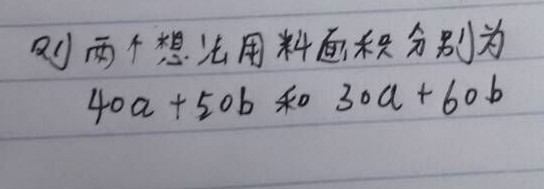 则两个想法用料面积分别为
40a+50b和30a+60b